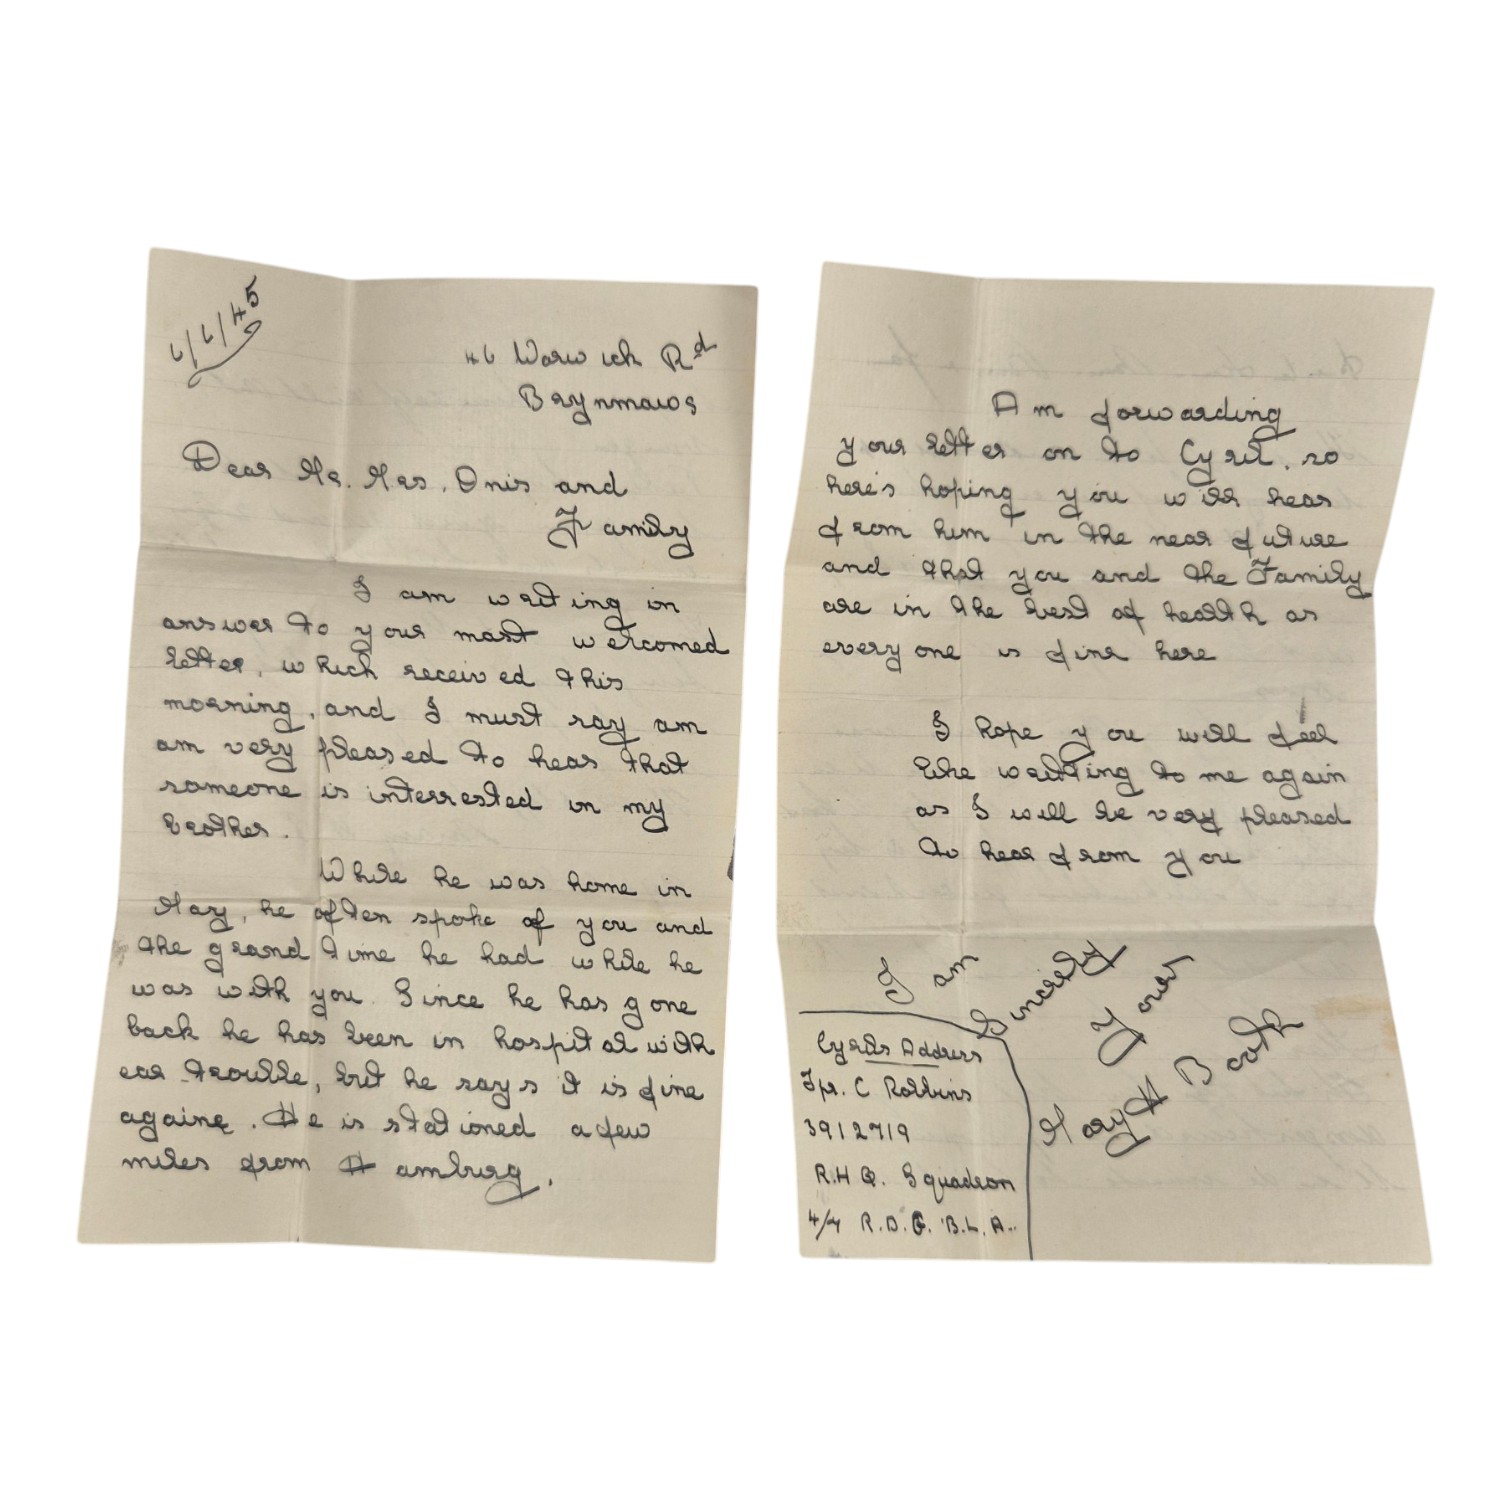 6/6/45
46 Warwick Rd
Brynmawr
Dear Mr. Mrs. Onis and
Family
I am writing in
answer to your most welcomed
letter, which received this
morning, and I must say am
am very pleased to hear that
someone is interrested in my
brother.
While he was home in
May, he often spoke of you and
the grand time he had while he
was with you. Since he has gone
back he has been in hospital with
ear trouble, but he says it is fine
againe. He is stationed a few
miles from Hamburg.
Am forwarding
your letter on to Cyril, so
here's hoping you will hear
from him in the near future
and that you and the Family
are in the best of health as
every one is fine here
I hope you will feel
like writting to me again
as I will be very pleased
to hear from you
I am
Sincirly
Your
Mary H Booth
Cyrils Address
Tpr. C Robbins
3912719
R.H.Q. Squadron
4/7 R.D.G. B.L.A..